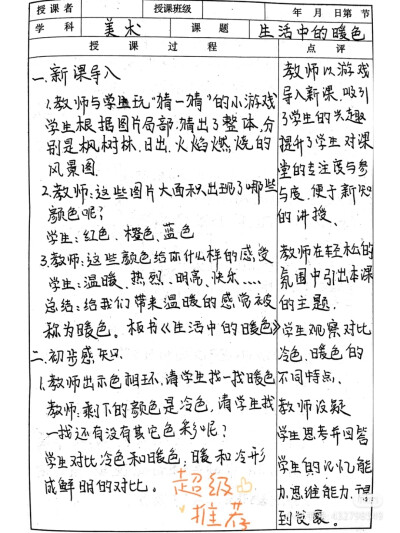 授课者
授课班级
年 月 日第 节
学科
美术
课题
生活中的暖色
授课过程
点评
一.新课导入
1.教师与学生玩“猜一猜”的小游戏
学生根据图片局部.猜出了整体,分
别是枫树林、日出、火焰燃烧的
风景图.
2.教师:这些图片大面积出现了哪些
颜色呢?
学生:红色、橙色、蓝色
3.教师:这些颜色给你什么样的感受
学生:温暖、热烈、明亮、快乐....
总结:给我们带来温暖的感觉被
称为暖色。板书《生活中的暖色》
二.初步感知
1.教师出示色相环,请学生找一找暖色
教师:剩下的颜色是冷色,请学生找
一找还有没有其它色彩呢?
学生对比冷色和暖色,暖和冷形
成鲜明的对比。
超级
推荐
教师以游戏
导入新课.吸引
了学生的兴趣
提升了学生对课
堂的专注度与参
与度.便于新知
的讲授、
教师在轻松的
氛围中引出本课
的主题.
学生观察对比
冷色、暖色的
不同特点.
教师设疑
学生思考并回答
学生的记忆能
力.思维能力.得
到发展。